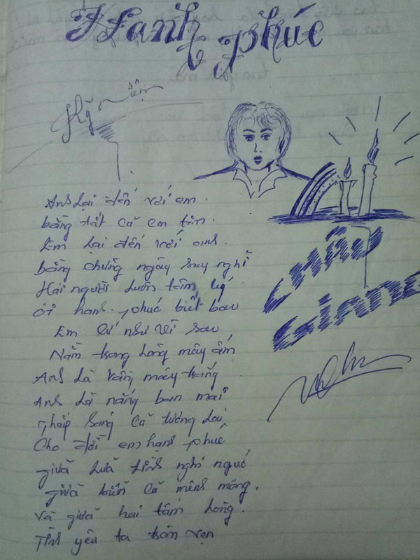 Hạnh phúc
Anh lại đến với em
bằng tất cả con tim
Em lại đến với anh
bằng những ngày suy nghĩ
Hai người luôn tâm lý
Ôi hạnh phúc biết bao
Em sẽ như vì sao
Nằm trong lòng mây ấm
Anh là vầng mây trắng
Anh là nắng ban mai
Thắp sáng cả tương lai
Cho đời em hạnh phúc
giữa lửa tình nghi ngút
giữa biển cả mênh mông
và giữa hai tấm lòng
Tình yêu ta trọn vẹn
Châu
Giang